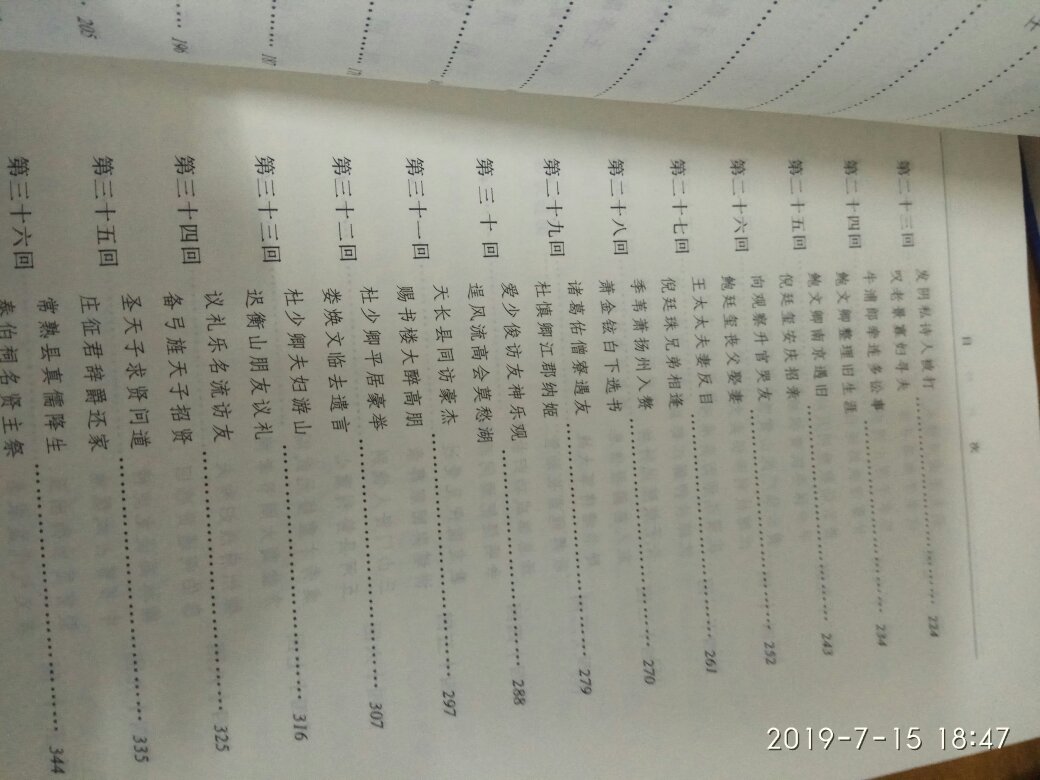 205
196
目 次
第二十三回
发阴私诗人被打
叹老景寡妇寻夫……………………224
第二十四回
牛浦郎牵连多讼事
鲍文卿整理旧生涯……………………234
第二十五回
鲍文卿南京遇旧
倪廷玺安庆招亲……………………243
第二十六回
向观察升官哭友
鲍廷玺丧父娶妻……………………252
第二十七回
王太太夫妻反目
倪廷珠兄弟相逢……………………261
第二十八回
季苇萧扬州入赘
萧金铉白下选书……………………270
第二十九回
诸葛佑僧寮遇友
杜慎卿江郡纳姬……………………279
第三十回
爱少俊访友神乐观
逞风流高会莫愁湖……………………288
第三十一回
天长县同访豪杰
赐书楼大醉高朋……………………297
第三十二回
杜少卿平居豪举
娄焕文临去遗言……………………307
第三十三回
杜少卿夫妇游山
迟衡山朋友议礼……………………316
第三十四回
议礼乐名流访友
备弓旌天子招贤……………………325
第三十五回
圣天子求贤问道
庄征君辞爵还家……………………335
第三十六回
常熟县真儒降生
泰伯祠名贤主祭……………………344
2019-7-15 18:47